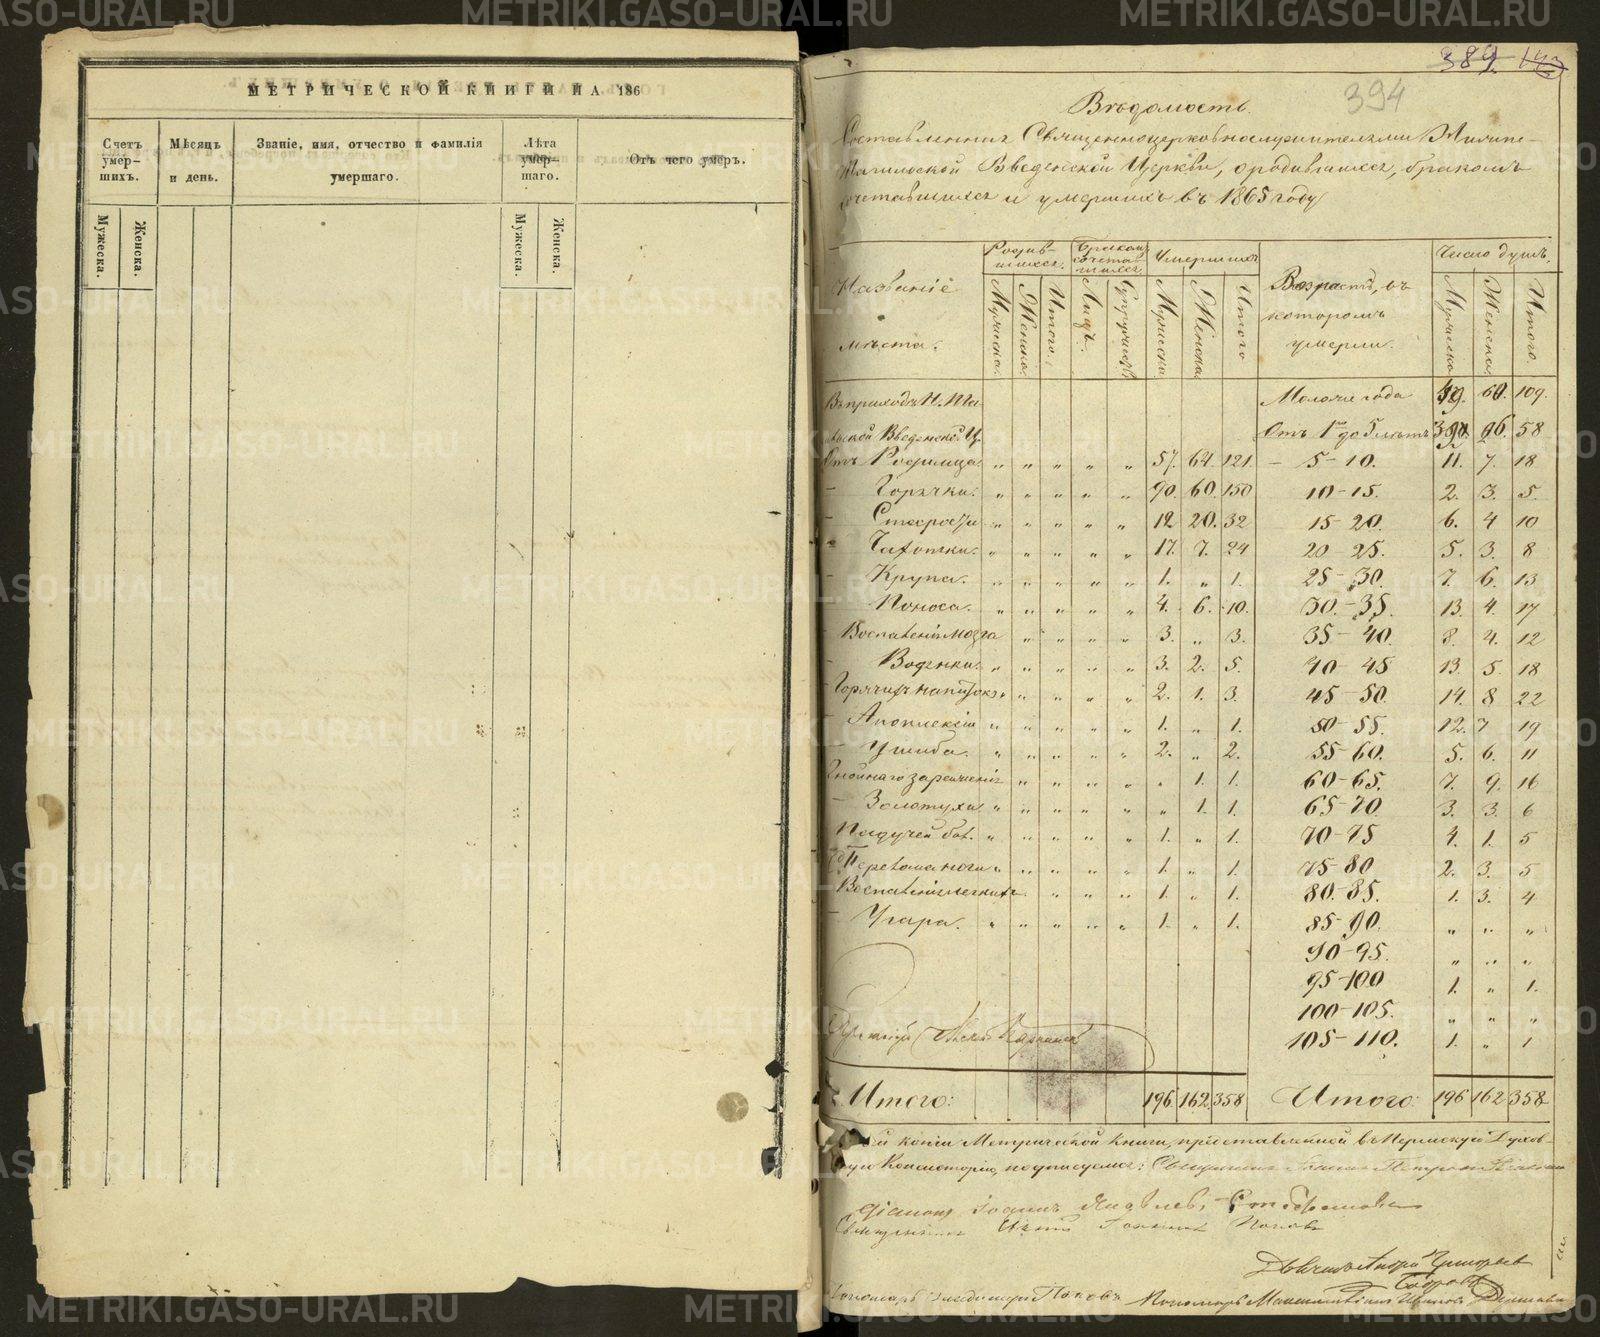 МЕТРИЧЕСКОЙ КНИГИ НА 186
Счетъ умер-шихъ.
Мѣсяцъ и день.
Званіе, имя, отчество и фамилія умершаго.
Лѣта умер-шаго.
Отъ чего умеръ.
Мужеска.
Женска.
Мужеска.
Женска.
389.
394
Вѣдомость
Составленная Священноцерковнослужителями Нижне-
Тагильской Введенской Церкви, о родившихся, бракомъ
сочетавшихся и умершихъ въ 1865 году
Названіе мѣста.
Родив-шихся.
Бракомъ сочетав-шихся
Умершихъ
Возрастъ, въ которомъ умерли.
Число душъ.
Мужеска. Женска. Итого. Лицъ. Супружествъ Мужеска. Женска Итого Мужеска Женска. Итого.
Въ приходѣ Н. Та Моложе года 49. 60. 109.
гильской Введенской Ц. Отъ 1 до 5 лѣтъ 58
Отъ Родимца „ „ „ „ „ 57. 64. 121. – 5-10. 11. 7. 18
– Горячки. „ „ „ „ „ 90. 60. 150 10-15. 2. 3. 5.
– Старости „ „ „ „ „ 12 20. 32 15-20. 6. 4 10
– Чахотки. „ „ „ „ „ 17. 7. 24 20-25. 5. 3. 8
– Крупа. „ „ „ „ „ 1. „ 1. 25-30. 7. 6. 13
Поноса. „ „ „ „ „ 4. 6. 10. 30-35. 13. 4. 17
Воспаленія мозга „ „ „ „ 3. „ 3. 35-40. 8. 4. 12
Водянки. „ „ „ „ „ 3. 2. 5. 40-45 13. 5. 18
Горячихъ напитковъ „ „ „ „ 2. 1. 3. 45-50. 14. 8 22
– Апоплексіи „ „ „ „ „ 1. „ 1. 50-55. 12. 7 19
– Ушиба. „ „ „ „ „ 2. „ 2. 55-60. 5. 6. 11
„ „ „ „ „ 1. 1. 60-65. 7. 9. 16
– Золотухи „ „ „ „ „ „ 1. 1. 65-70. 3. 3. 6
Падучей бол. „ „ „ „ „ 1. „ 1. 70-75 4. 1. 5
Перелома ноги „ „ „ „ „ 1. „ 1. 75-80 2. 3. 5
Воспаленія легкихъ „ „ „ 1. „ 1. 80-85. 1. 3. 4
– Угара. „ „ „ „ „ 1. „ 1. 85-90. „ „ „
90-95. „ „ „
95-100 1. „ 1.
100-105. „ „ „
105-110. 1. „ 1
Итого: 196 162 358 Итого: 196 162 358
копіи Метрической книги, представленной въ Пермскую Духов-
ную Консисторію, подписуемся: Священникъ Іоаннъ
Діаконъ Іоаннъ Яковлевъ
Священникъ Іоаннъ Поповъ
Пономарь Владимиръ Поповъ Пономарь
METRIKI.GASO-URAL.RU